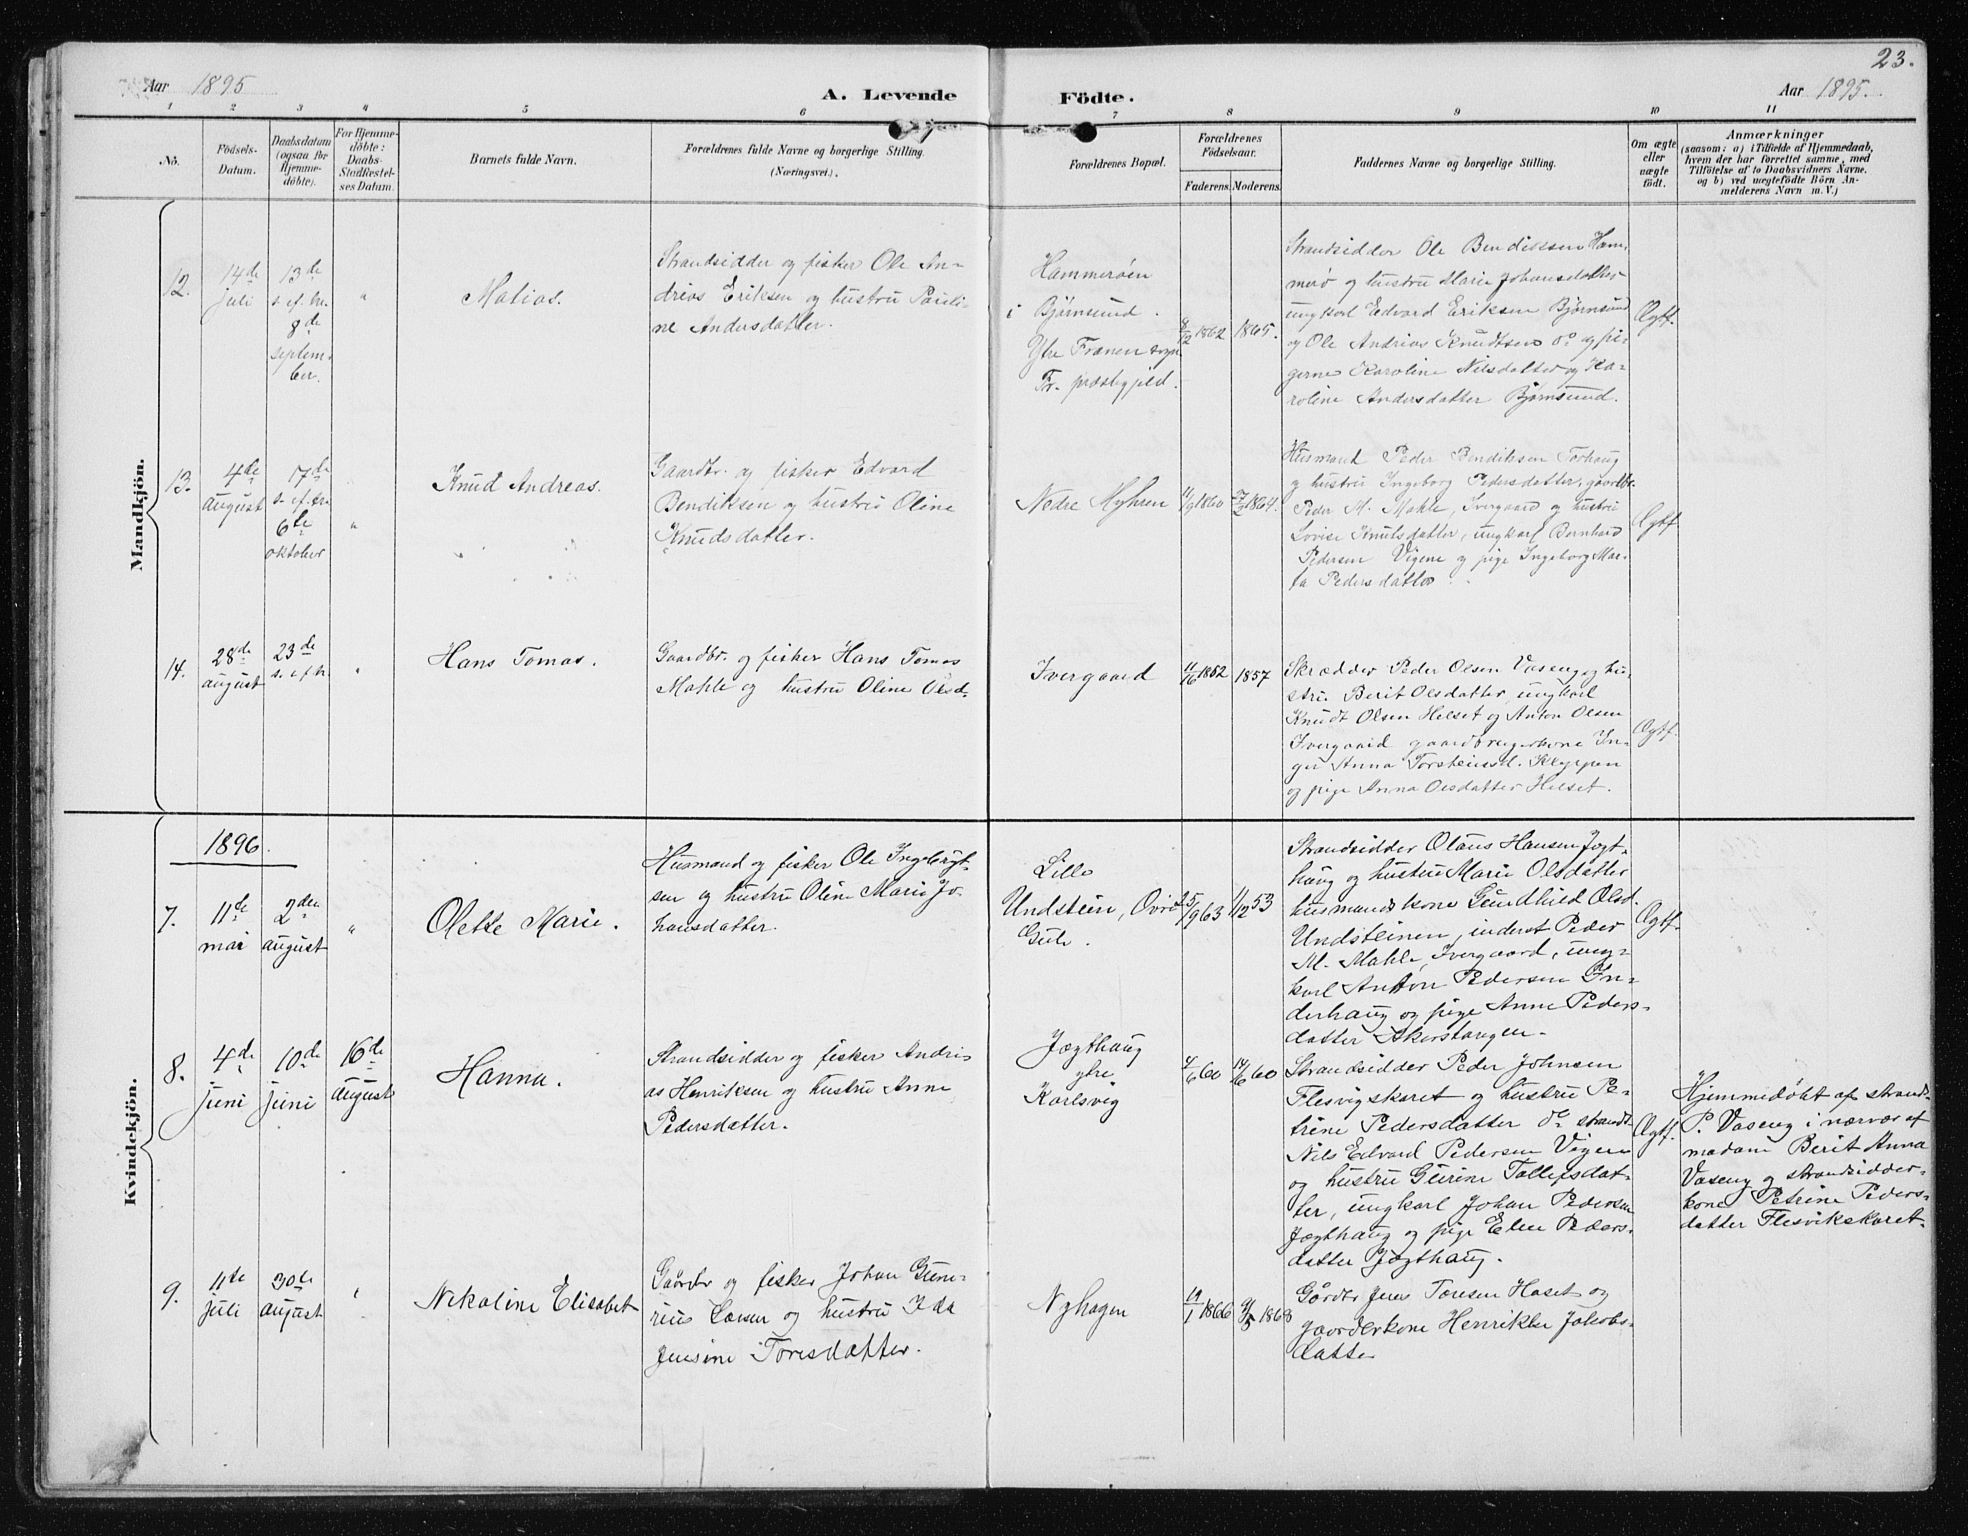 23.
Aar 1895
A. Levende Födte.
Aar 1895.
1 2 3 4 5 6 7 8 9 10 11
No.
Födsels-
Datum.
Daabsdatum
(ogsaa for
Hjemme-
döbte).
For Hjemme-
döbte:
Daabs-
Stadfæstel-
ses Datum.
Barnets fulde Navn.
Forældrenes fulde Navne og borgerlige Stilling.
(Næringsvei).
Forældrenes Bopæl.
Forældrenes
Födselsaar.
Faderens. Moderens.
Faddernes Navne og borgerlige Stilling.
Om ægte
eller
uægte
födt.
Anmærkninger
(saasom: a) i Tilfælde af Hjemmedaab,
hvem der har forrettet samme, med
Tilföielse af to Daabsvidners Navne,
og b) ved uægtefödte Börn An-
melderens Navn m. V.)
Mandkjön.
12.
14de
juli
13de
s. ef. tr.
8de
septem-
ber.
"
Matias.
Strandsidder og fisker Ole An-
drias Eriksen og hustru Pauli-
ne Andersdatter.
Hammerøen
i Bjørnsund.
Ytre Frænen sogn
Fr. præstegjeld.
8/12 1862
1865.
Strandsidder Ole Bendissen Ham-
merø og hustru Marie Johansdatter
ungkarl Edvard Eriksen Bjørnsund
og Ole Andrias Knudtsen do og pi-
gerne Karoline Nilsdatter og Ka-
roline Andersdatter Bjørnsund.
Ægtf.
13.
4de
august
17de
s. ef. tr.
6te
oktober
"
Knud Andreas.
Gaardbr. og fisker Edvard
Bendiksen og hustru Oline
Knudsdatter.
Nedre Myhren
11/9 1860
27/2 1864.
Husmand Peder Bendiksen Torhaug
og hustru Ingeborg Pedersdatter, gaardbr.
Peder M. Mahle, Ivergaard og hustru
Lovise Knutsdatter, ungkarl Bernhard
Pedersen Vigene og pige Ingeborg Mar-
ta Pedersdatter
Ægtf.
14.
28de
august
23de
s. ef. tr.
"
Hans Tomas.
Gaardbr. og fisker Hans Tomas
Mahle og hustru Oline Olsd-
Ivergaard
11/6 1862
1857
Skrædder Peder Olsen Vaseng og hu-
stru Berit Olsdatter, ungkarl
Knudt Olsen Helset og Anton Olsen
Ivergaard gaardbrugerkone In-
ger Anna Torsteinsd. Kleppen
og pige Anna Olsdatter Helset.
Ægtf.
Kvindekjön.
1896.
7.
11te
mai
2den
august
"
Olette Marie.
Husmand og fisker Ole Ingebrigt-
sen og hustru Oline Marie Jo-
hansdatter.
Lille
Undstein, Øvre
Gule.
25/9 63
11/12 53
Strandsidder Olaus Hansen Jægt-
haug og hustru Marie Olsdatter
husmandskone Gundhild Olsd.
Undsteinen, inderst Peder
M. Mahle, Ivergaard, ung-
karl Anton Pedersen In-
derhaug og pige Anne Peders-
datter Akerstangen.
Ægtf.
8.
4de
juni
10de
juni
16de
august
Hanna.
Strandsidder og fisker Andri-
as Henriksen og hustru Anne
Pedersdatter.
Jægthaug
ytre
Karlsvig
4/6 60
14/6 60
Strandsidder Peder Johnsen
Flesvigskaret og hustru Pe-
trine Pedersdatter do strandr.
Nils Edvard Pedersen Vigen
og hustru Gurine Tollefsdat-
ter, ungkarl Johan Pedersen
Jægthaug og pige Elen Peders-
datter Jægthaug.
Ægtf.
Hjemmedøbt af strand-
P. Vaseng i nærvær af
madam Berit Anna
Vaseng og strandsidder-
kone Petrine Peders-
datter Flesvikskaret.
9.
11te
juli
30de
august
"
Nikoline Elisabet
Gaardbr og fisker Johan Gun-
rius Larsen og hustru Ida
Jensine Toresdatter.
Nyhagen
19/1 1866
9/5 1868
Gårdbr Jens Toresen Haset og
gaarderkone Henrikke Jakobs-
datter